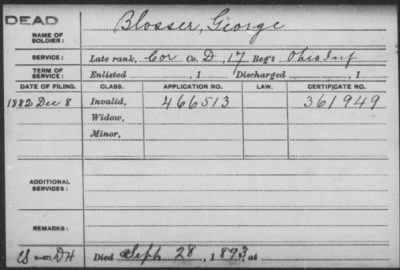 DEAD
NAME OF SOLDIER: Blosser, George
SERVICE: Late rank, Cor Co. D, 17 Reg't Ohio Inf
TERM OF SERVICE: Enlisted , 1 Discharged , 1
DATE OF FILING. CLASS. APPLICATION NO. LAW. CERTIFICATE NO.
1882 Dec 8 Invalid, 466513 361949
Widow,
Minor,
ADDITIONAL SERVICES:
REMARKS:
Died Sept 28, 1893, at